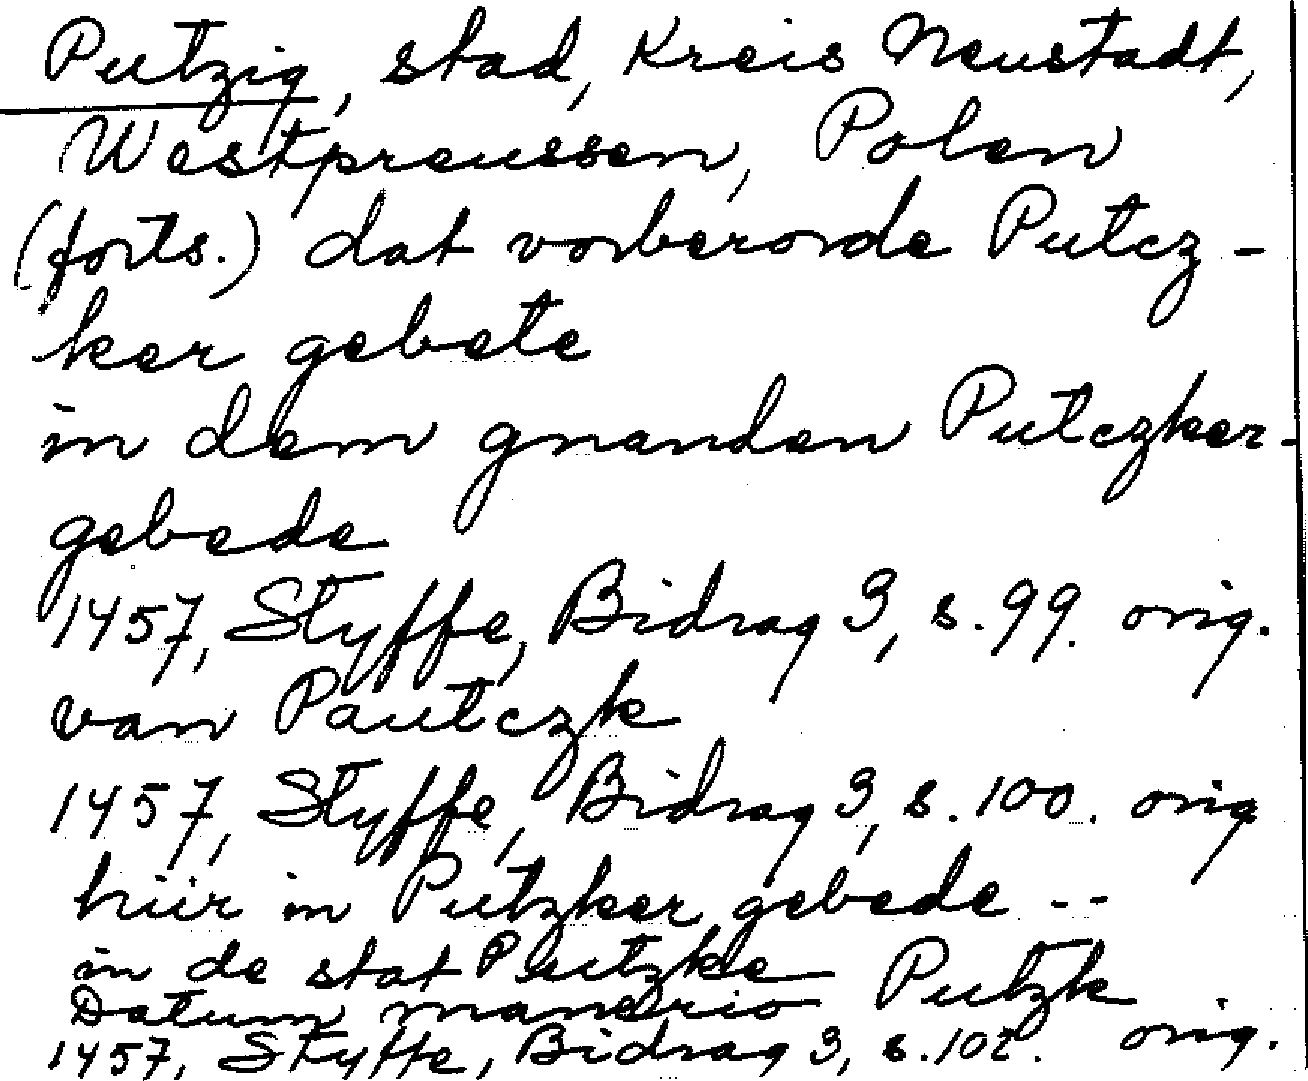 Putzig, stad, Kreis Neustadt,
Westpreussen, Polen
(forts.) dat vorberorde Putcz-
ker gebete
in dem gnanden Putczker-
gebede
1457, Styffe, Bidrag 3, s. 99. orig.
van Pautczk
1457, Styffe, Bidrag 3, s. 100. orig
hiir in Putzker gebede --
in de stat Putzke
Datum manerio Putzk
1457, Styffe, Bidrag 3, s. 102. orig.